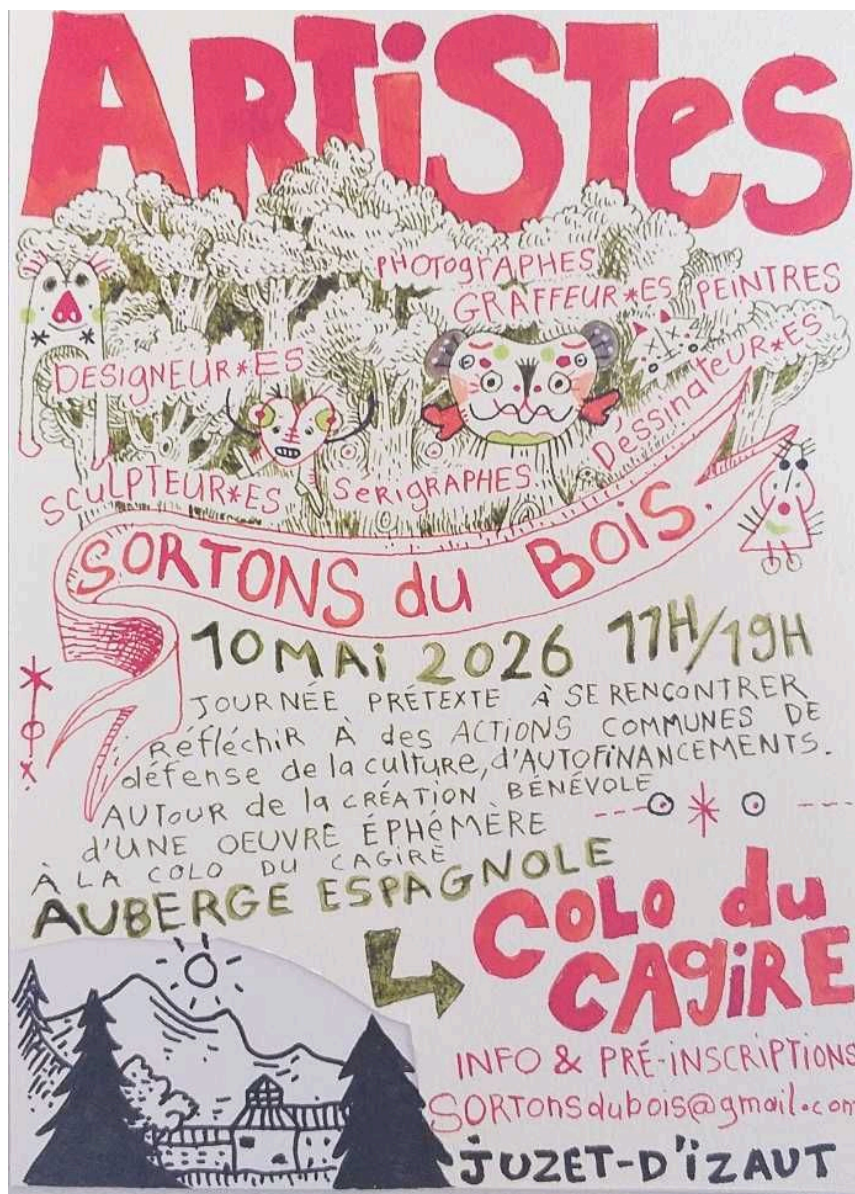 ARTiSTes
PHOTOgRAPHES
GRAFFEUR*ES PEINTRES
DESIGNEUR*ES
DéssinateUR*ES
SCULPTEUR*ES SERIGRAPHES
SORTONS du BOiS.
10 MAi 2026 11H/19H
JOURNÉE PRÉTEXTE À SE RENCONTRER
RéfléchiR À des ACTIONS COMMUNES DE
défense de la culture, d'AUTOFiNANCEMENTS.
AUTOUR de la CRÉATION BÉNÉVOLE
d'UNE OEUVRE ÉPHÉMÈRE
À LA COLO DU CAGIRE
AUBERGE ESPAGNOLE
COLO du
CAgiRE
INFO & PRÉ-INSCRIPTIONS
SORTonsdubois@gmail.com
JUZET-D'iZAUT